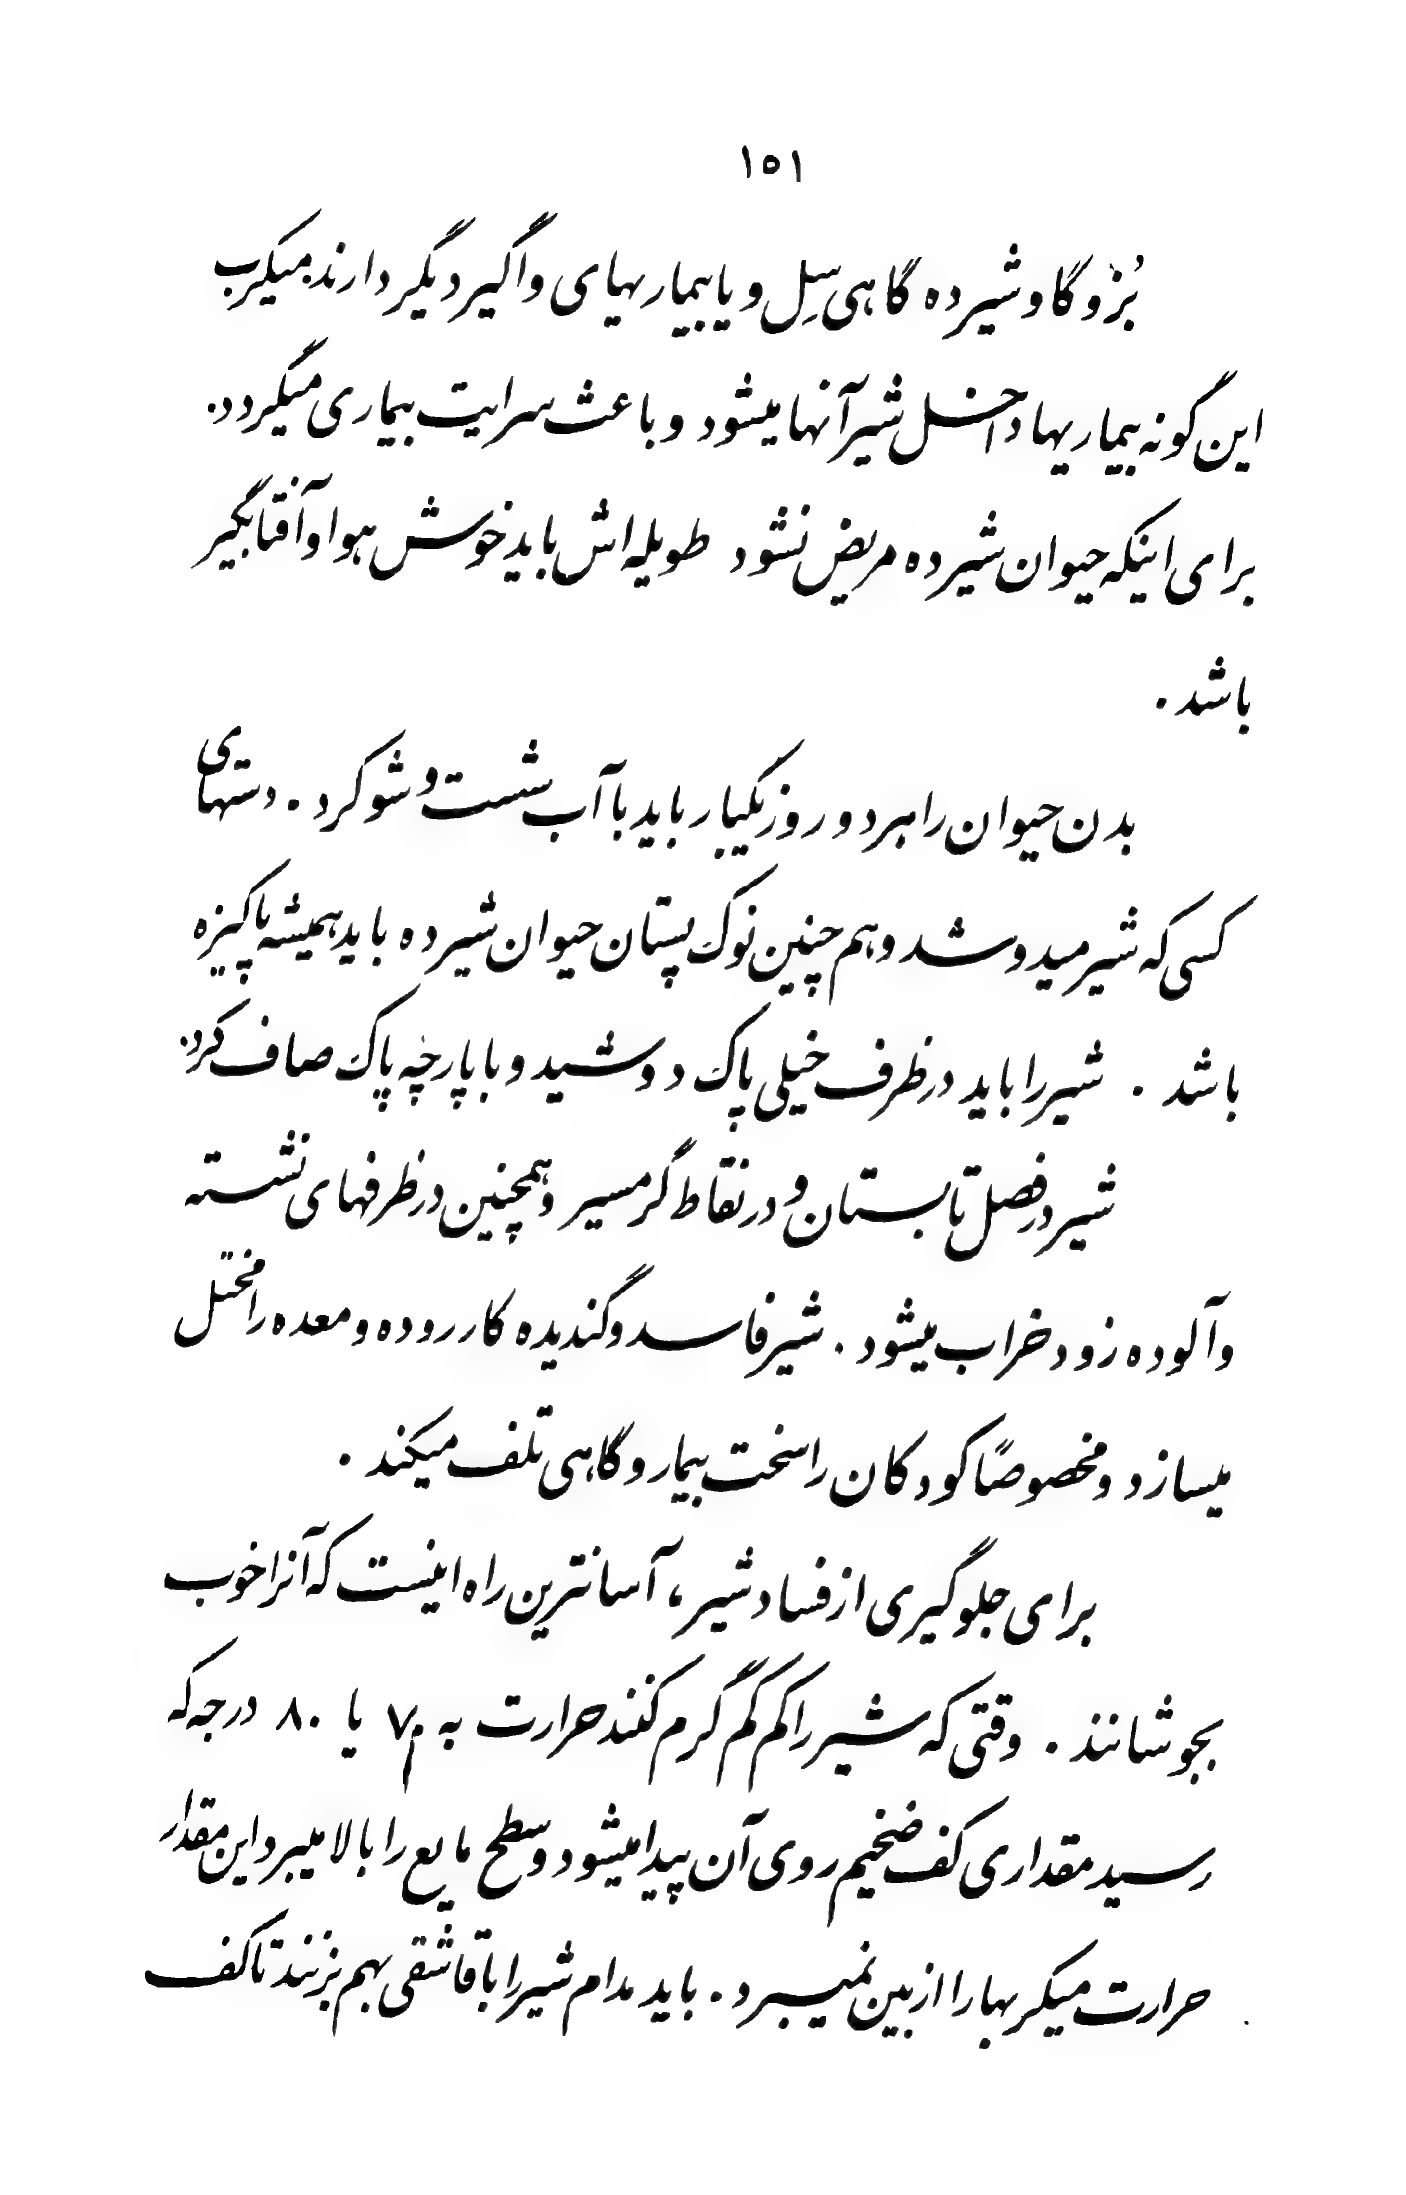 ۱۵۱
بُز و گاو شیرده گاهی سِل و یا بیماریهای واگیر دیگر دارند. میکرب
این گونه بیماریها داخل شیر آنها میشود و باعث سرایت بیماری میگردد.
برای اینکه حیوان شیرده مریض نشود طویله اش باید خوش هوا و آفتابگیر
باشد .
بدن حیوان را هر دو روز یکبار باید با آب شست و شو کرد . دستهای
کسی که شیر میدوشد و هم چنین نوک پستان حیوان شیرده باید همیشه پاکیزه
باشد . شیر را باید در ظرف خیلی پاک دوشید و با پارچه پاک صاف کرد.
شیر در فصل تابستان و در نقاط گرمسیر و همچنین در ظرفهای نشسته
و آلوده زود خراب میشود . شیر فاسد و گندیده کار روده و معده را مختل
میسازد و مخصوصاً کودکان را سخت بیمار و گاهی تلف میکند .
برای جلوگیری از فساد شیر، آسانترین راه اینست که آنرا خوب
بجوشانند . وقتی که شیر را کم کم گرم کنند حرارت به ۷۰ یا ۸۰ درجه که
رسید مقداری کف ضخیم روی آن پیدا میشود و سطح مایع را بالا میبرد این مقدار
حرارت میکربها را از بین نمیبرد . باید مدام شیر را با قاشقی بهم بزنند تا کف